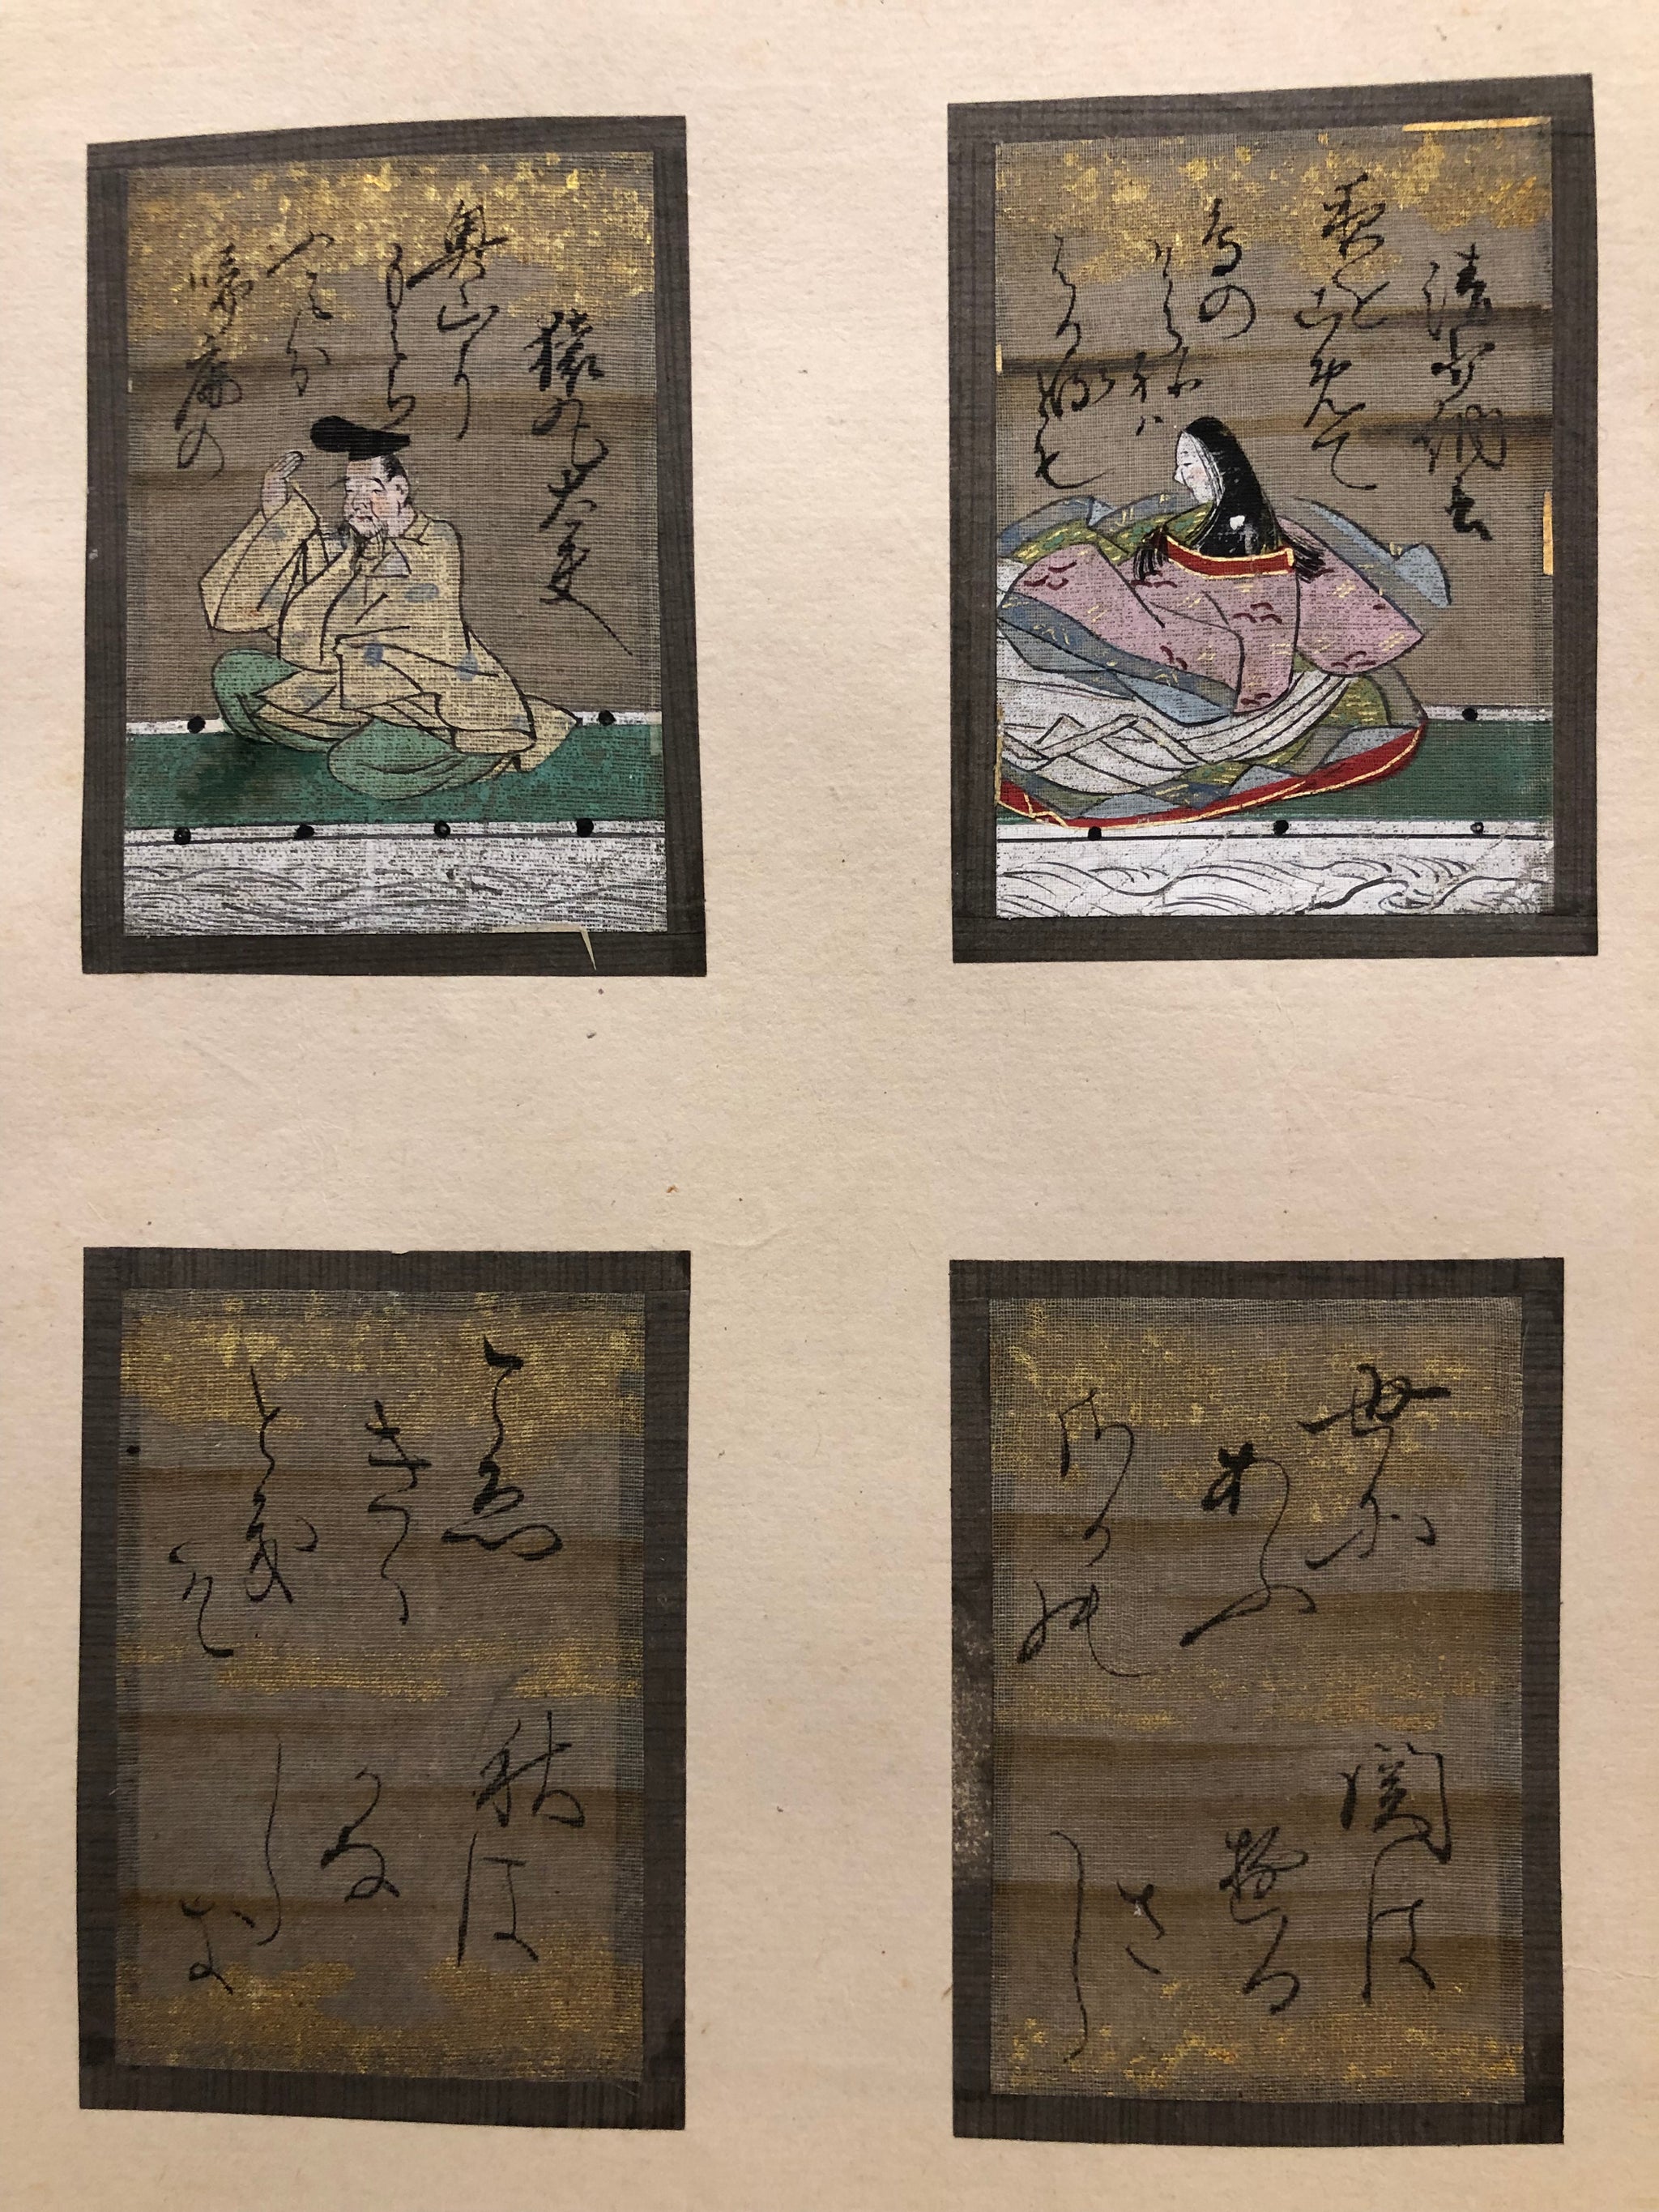 清少納言
夜をこめて
鳥の
そらねハ
はかるとも
世に
あふ
さかの
関は
遊る
さ
し
猿丸大夫
奥山に
もみち
ふみわけ
啼鹿の
こゑ
きく
とき
そ
秋は
かな
し
き